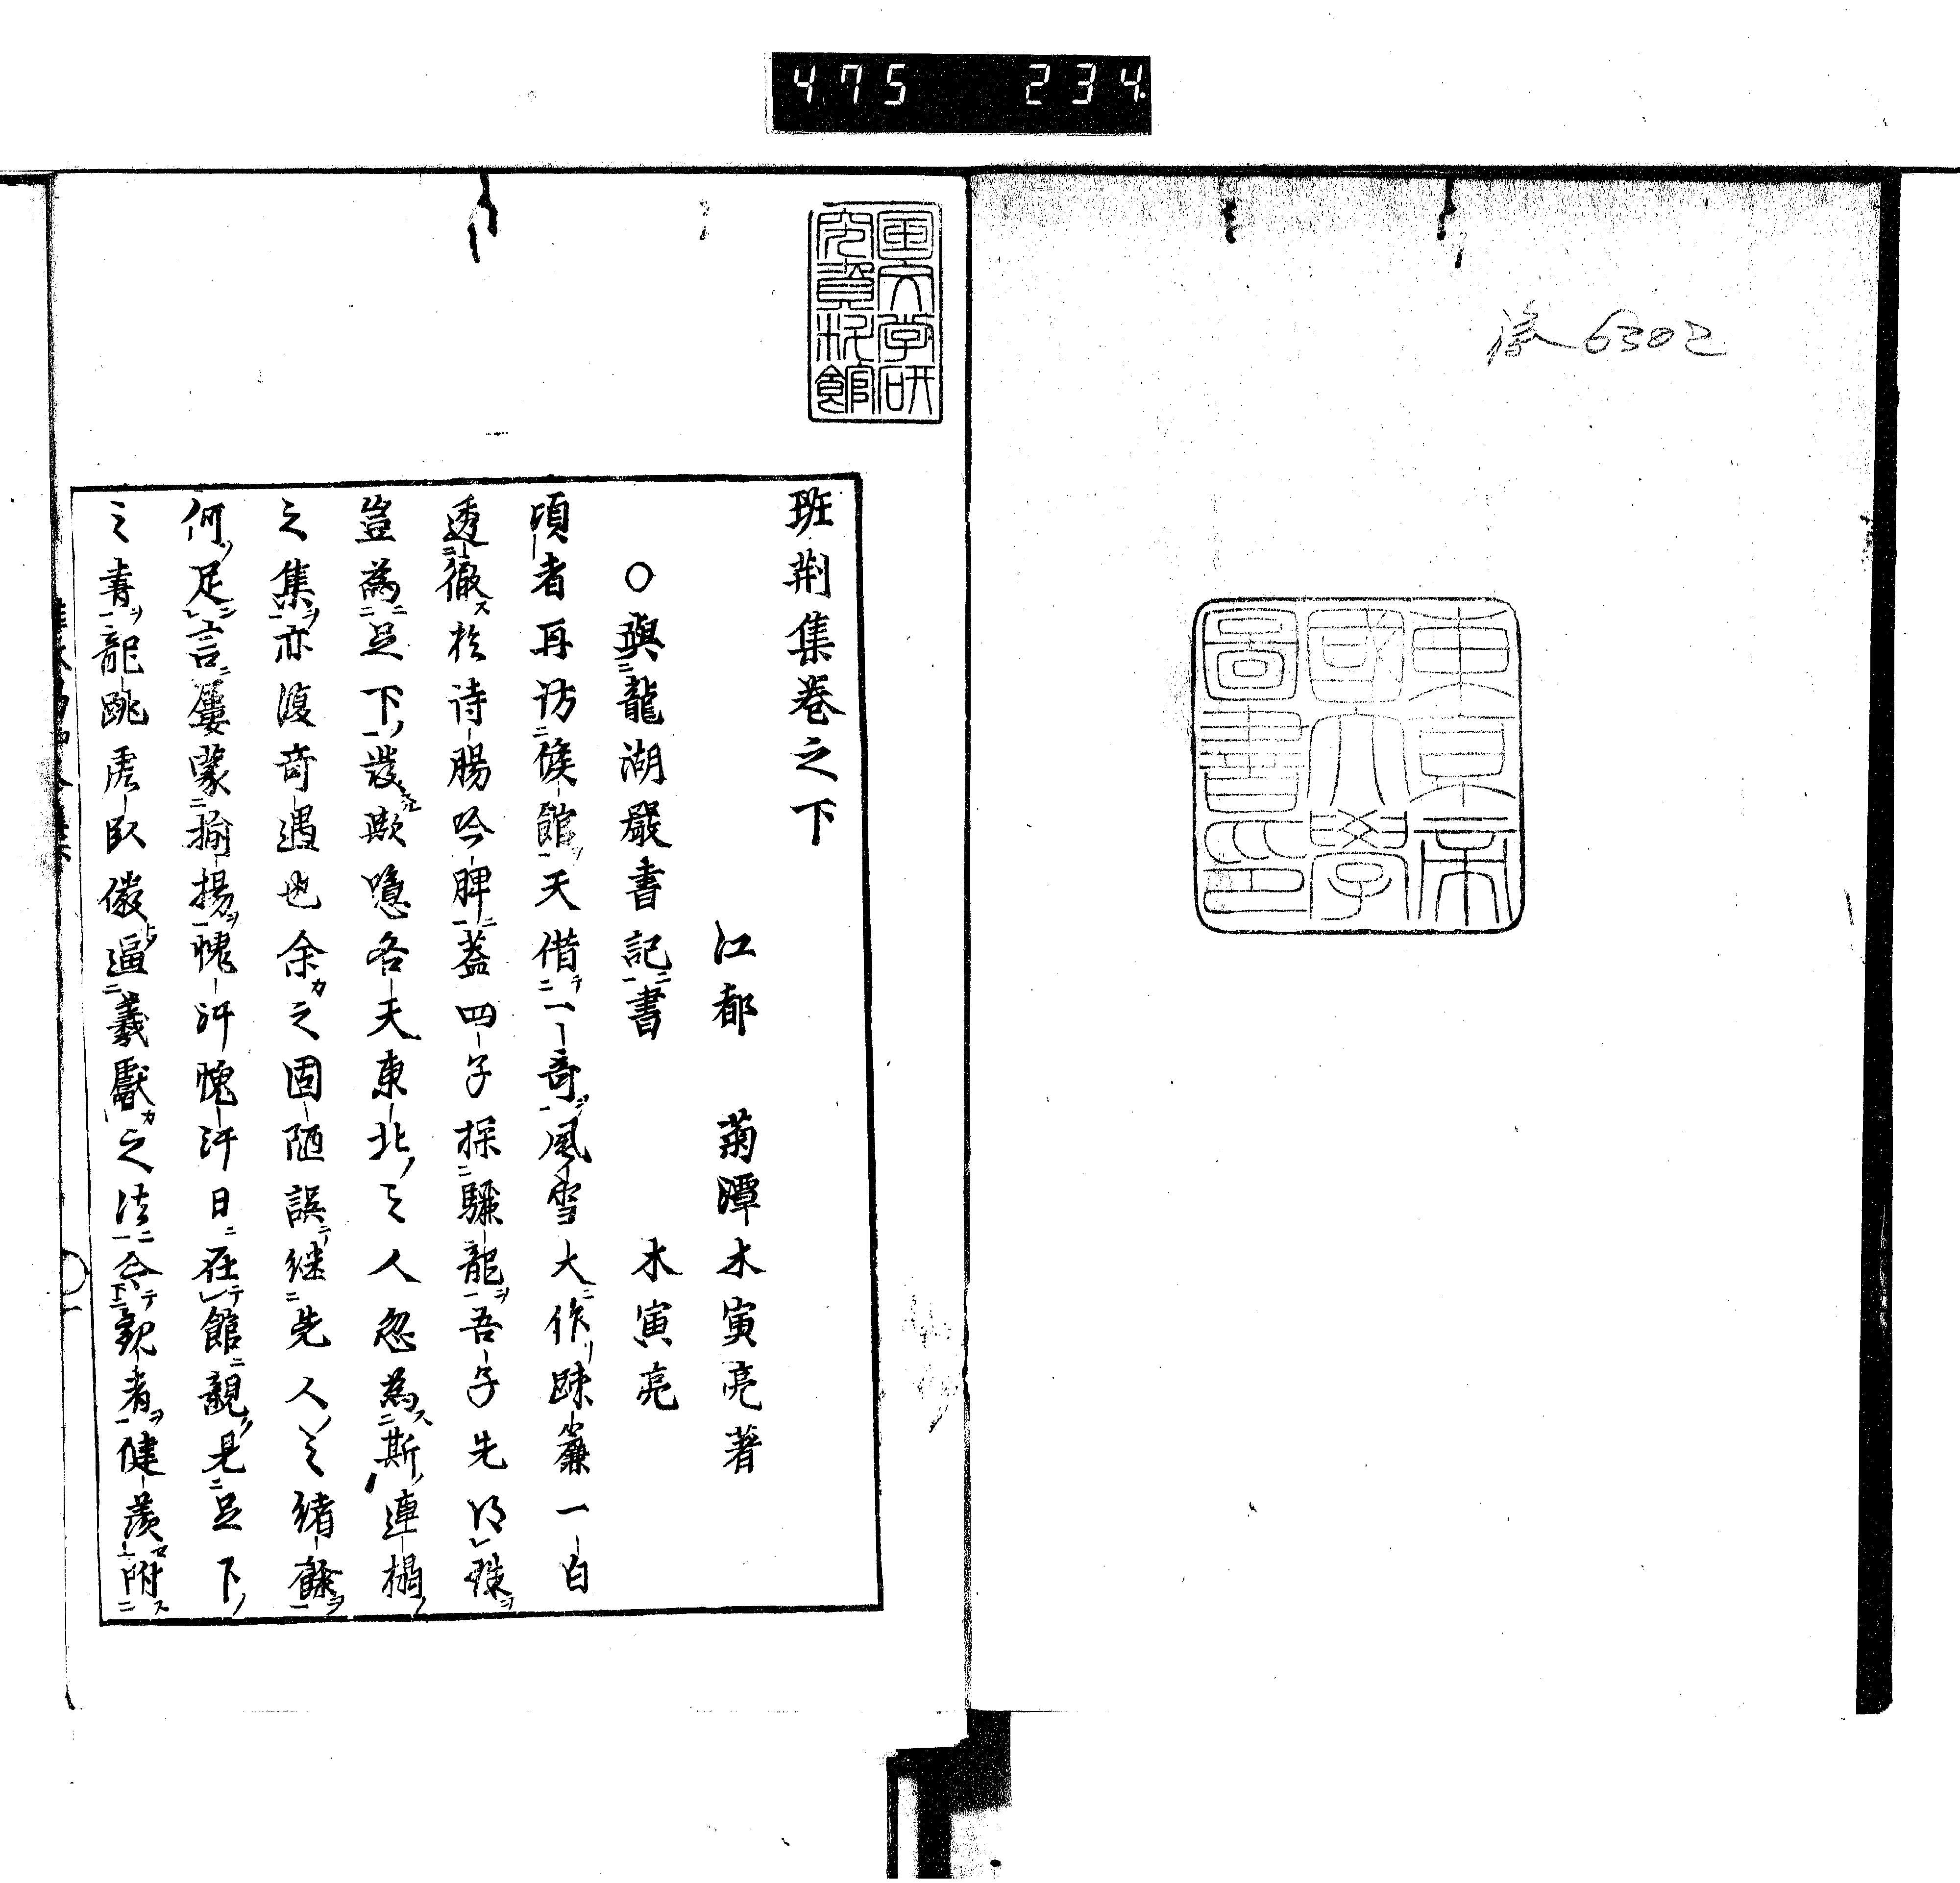 475 234
6302
東京帝
國大學
圖書印
国文学研
究資料館
班荆集卷之下
江都 菊潭木寅亮著
〇與龍湖嚴書記書 木寅亮
頃者再訪候館天借一奇風雪大作踈簾一白
透徹於诗腸吟脾蓋四子探驪龍吾子先得珠
豈為足下發歟噫各天東北之人忽為斯連榻
之集亦復奇遇也余之固陋誤继先人之緒餘
何足言屢蒙揄揚愧汗愧汗日在館親見足下
之書龍跳虎臥儼逼羲獻之法令觀者健羨附